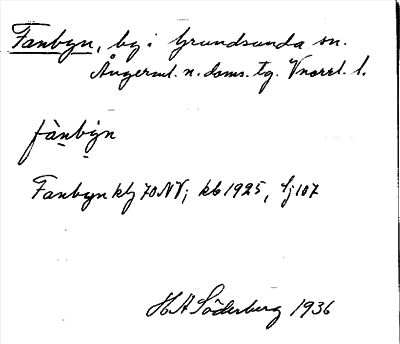 Fanbyn, by i Grundsunda sn.
Ångerml. n. doms. tg. Vnorrl. l.
fànbýn
Fanbyn kbg 70 NV; kb 1925, lj 107
H A Söderberg 1936